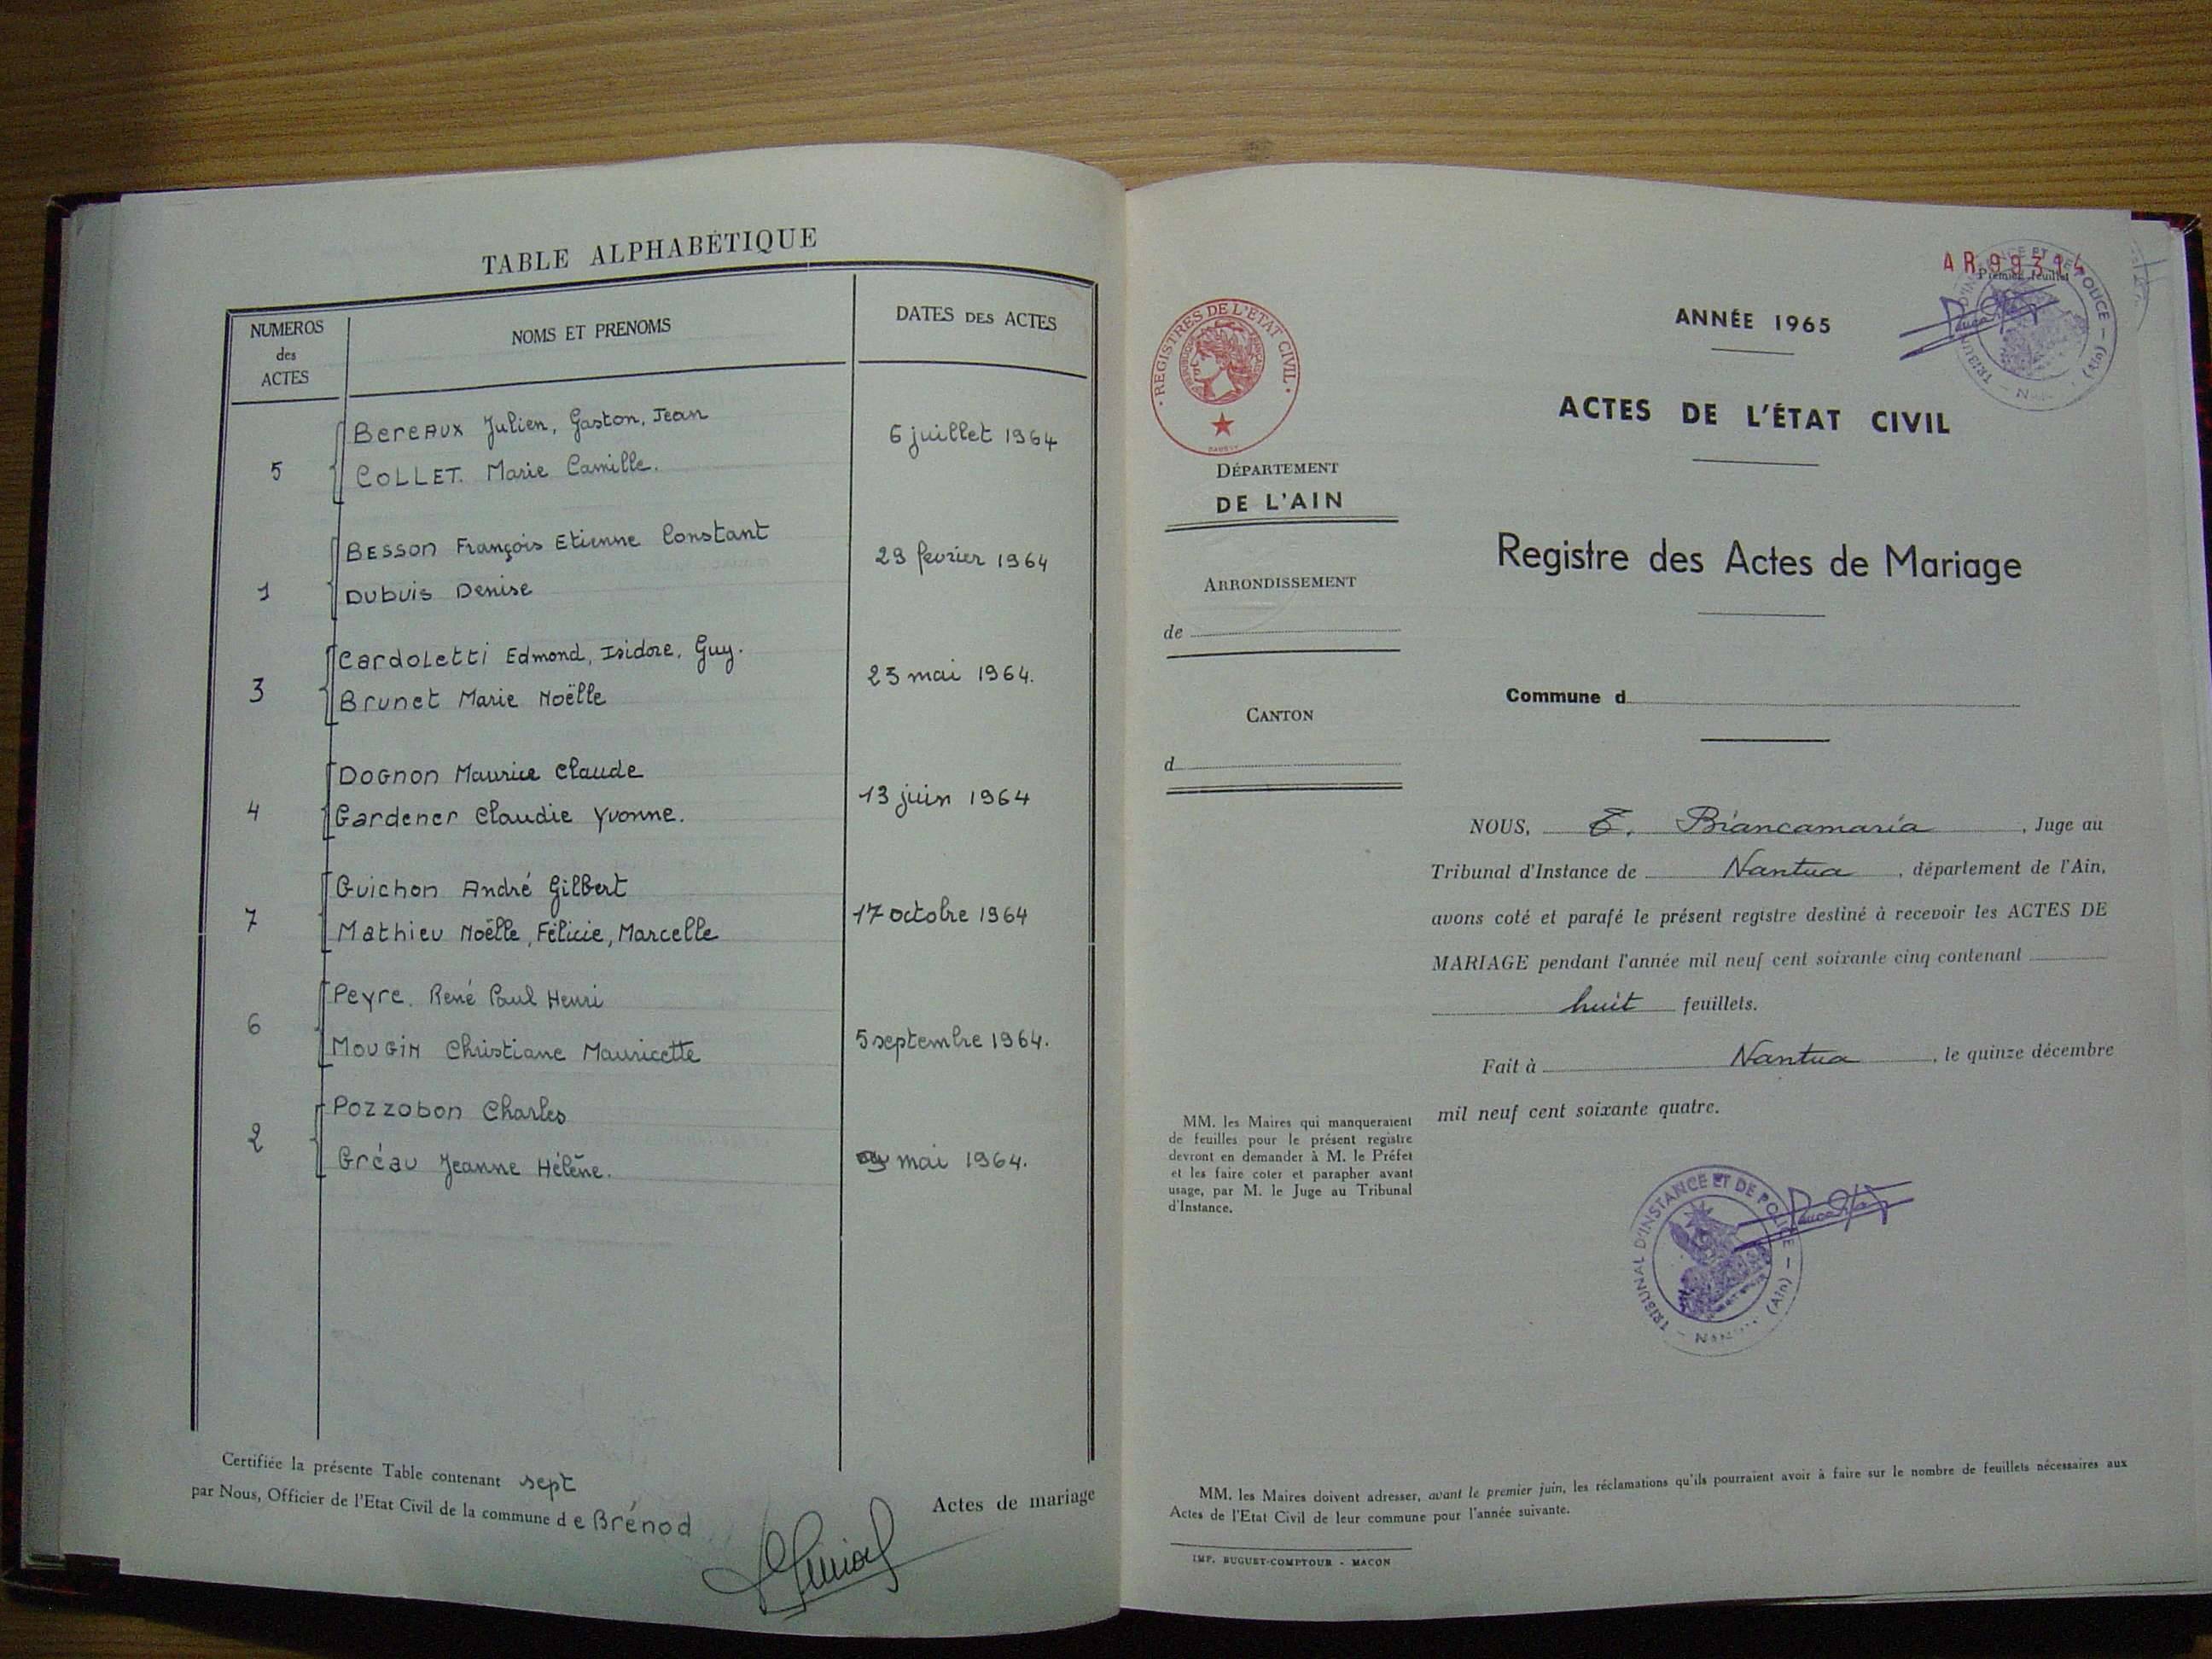 TABLE ALPHABÉTIQUE
NUMEROS
des
ACTES
NOMS ET PRENOMS
DATES DES ACTES
Bereaux Julien, Gaston, Jean
5
COLLET. Marie Camille.
6 juillet 1964
BESSON François Etienne Constant
1
Dubuis Denise
29 fevrier 1964
Cardoletti Edmond, Isidore, Guy.
3
Brunet Marie Noëlle
23 mai 1964.
Dognon Maurice Claude
4
Gardener Claudie Yvonne.
13 juin 1964
Guichon André Gilbert
7
Mathieu Noëlle, Félicie, Marcelle
17 octobre 1964
Peyre. René Paul Henri
6
Mougin Christiane Mauricette
5 septembre 1964.
Pozzobon Charles
2
Gréau Jeanne Hélène.
mai 1964.
Certifiée la présente Table contenant sept
Actes de mariage
par Nous, Officier de l'Etat Civil de la commune de Brénod
AR
Premier feuillet
TRIBUNAL D'INSTANCE ET DE POLICE - (Ain) -
· REGISTRES DE L'ETAT CIVIL ·
ANNÉE 1965
ACTES DE L'ÉTAT CIVIL
DÉPARTEMENT
DE L'AIN
Registre des Actes de Mariage
ARRONDISSEMENT
de
Commune d
CANTON
d
NOUS, E. Biancamaria, Juge au
Tribunal d'Instance de Nantua, département de l'Ain,
avons coté et parafé le présent registre destiné à recevoir les ACTES DE
MARIAGE pendant l'année mil neuf cent soixante cinq contenant
huit feuillets.
Fait à Nantua, le quinze décembre
mil neuf cent soixante quatre.
MM. les Maires qui manqueraient
de feuilles pour le présent registre
devront en demander à M. le Préfet
et les faire coter et parapher avant
usage, par M. le Juge au Tribunal
d'Instance.
TRIBUNAL D'INSTANCE ET DE POLICE - (Ain) -
MM. les Maires doivent adresser, avant le premier juin, les réclamations qu'ils pourraient avoir à faire sur le nombre de feuillets nécessaires aux
Actes de l'Etat Civil de leur commune pour l'année suivante.
IMP. BUGUET-COMPTOUR - MACON